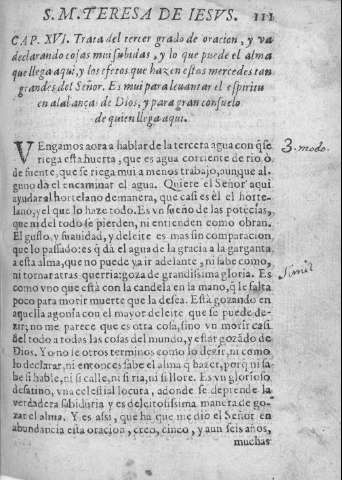 S. M. TERESA DE IESVS. 111
CAP. XVI. Trata del tercer grado de oracion, y va
declarando cosas mui subidas, y lo que puede el alma
que llega aqui, y los efetos que hazen estas mercedes tan
grandes del Señor. Es mui para levantar el espiritu
en alabança de Dios, y para gran consuelo
de quien llega aqui.
VEngamos aora a hablar de la tercera agua con q̃ se
riega esta huerta, que es agua corriente de rio ò
de fuente, que se riega mui a menos trabajo, aunque al-
guno dà el encaminar el agua. Quiere el Señor aqui
ayudar al hortelano de manera, que casi es èl el horte-
lano, y el que lo haze todo. Es vn sueño de las potēcias,
que ni del todo se pierden, ni entienden como obran.
El gusto, y suauidad, y deleite es mas sin comparacion
que lo passado: es q̃ dà el agua de la gracia a la garganta
a esta alma, que no puede ya ir adelante, ni sabe como,
ni tornar atras querria: goza de grandissima gloria. Es
como vno que està con la candela en la mano, q̃ le falta
poco para morir muerte que la desea. Està gozando en
aquella agonia con el mayor deleite que se puede de-
zir; no me parece que es otra cosa, sino vn morir casi
del todo a todas las cosas del mundo, y estar gozādo de
Dios. Yo no se otros terminos como lo dezir, ni como
lo declarar, ni entonces sabe el alma q̃ hazer, porq̃ ni sa-
be si hable, ni si calle, ni si ria, ni si llore. Es vn glorioso
desatino, vna celestial locura, adonde se deprende la
verdadera sabiduria y es deleitosissima manera de go-
zar el alma. Y es assi, que ha que me dio el Señor en
abundancia esta oracion, creo, cinco, y aun seis años,
muchas
3. modo.
Simil